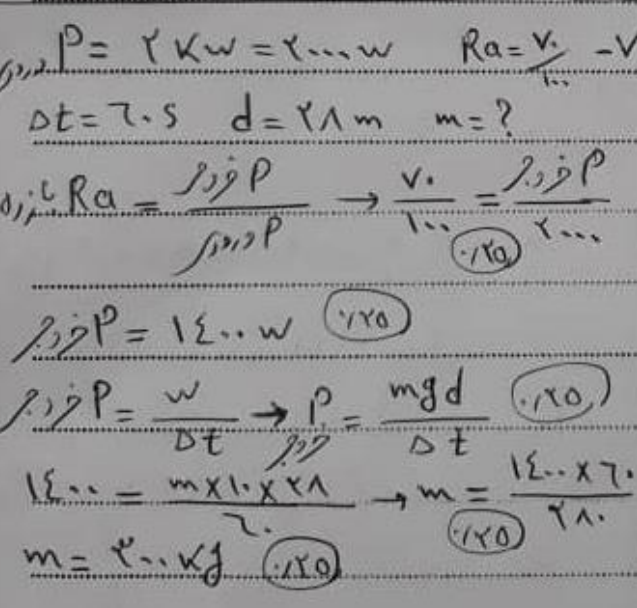 P ورودی = ۲ kw = ۲۰۰۰ w Ra = ۷۰/۱۰۰
Δt = ٦۰ s d = ۲۸ m m = ?
بازده Ra = P خروجی / P ورودی → ۷۰/۱۰۰ = P خروجی / ۲۰۰۰ ۰/۲۵
P خروجی = ۱٤۰۰ w ۰/۲۵
P خروجی = w/Δt → P خروجی = mgd/Δt ۰/۲۵
۱٤۰۰ = m×۱۰×۲۸ / ٦۰ → m = ۱٤۰۰×٦۰ / ۲۸۰ ۰/۲۵
m = ۳۰۰ kg ۰/۲۵